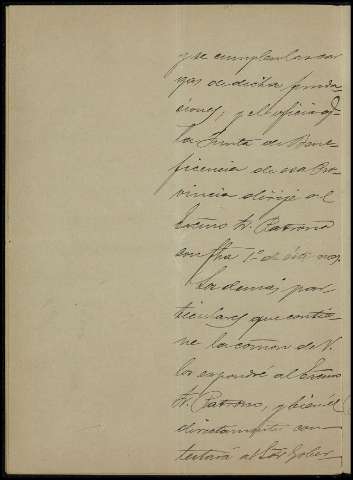 y se cumplan las car
gas de dicha funda-
ciones, y el oficio q.
la Junta de Bene-
ficencia de esa Pro-
vincia dirije al
Excmo Sr. Patrono
con fha 1º de este mes.
Los demas par-
ticulares que contie
ne la comon de V.
los expondré al Excmo
Sr. Patrono, y bien él
directamente con-
testará al Sor Gober